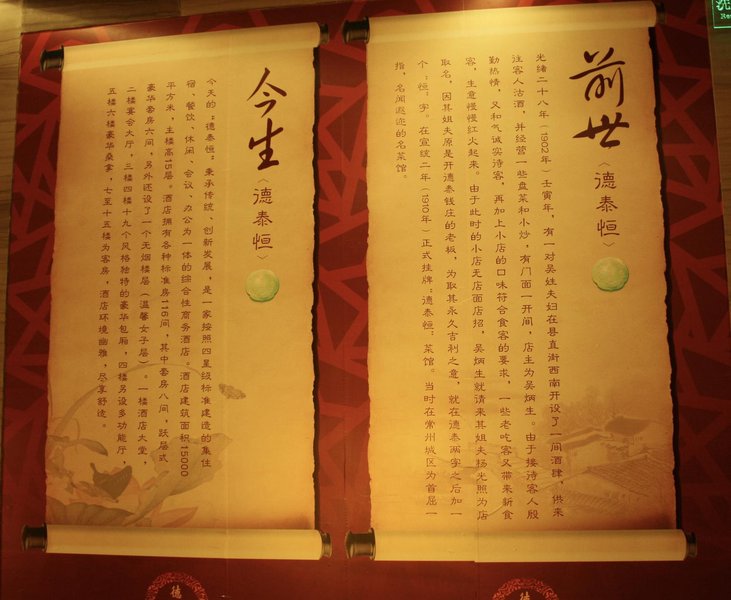 前世
〈德泰恒〉
光绪二十八年（1902年）壬寅年，有一对吴姓夫妇在县直街西南开设了一间酒肆，供来
往客人沽酒，并经营一些盘菜和小炒，有门面一开间，店主为吴炳生。由于接待客人殷
勤热情，又和气诚实待客，再加上小店的口味符合食客的要求，一些老吃客又带来新食
客，生意慢慢红火起来。由于此时的小店无店面店招，吴炳生就请来其姐夫杨光照为店
取名，因其姐夫原是开德泰钱庄的老板，为取其永久吉利之意，就在德泰两字之后加一
个“恒”字。在宣统二年（1910年）正式挂牌“德泰恒”菜馆。当时在常州城区为首屈一
指，名闻遐迩的名菜馆。
今生
〈德泰恒〉
今天的“德泰恒”秉承传统、创新发展，是一家按照四星级标准建造的集住
宿、餐饮、休闲、会议、办公为一体的综合性商务酒店。酒店建筑面积15000
平方米，主楼高15层。酒店拥有各种标准房116间，其中套房八间，跃层式
豪华套房六间，另外还设了一个无烟楼层（温馨女子层）。一楼酒店大堂，
二楼宴会大厅，三楼四楼十九个风格独特的豪华包厢，四楼另设多功能厅，
五楼六楼豪华桑拿，七至十五楼为客房，酒店环境幽雅，尽享舒适。
德
德
洗